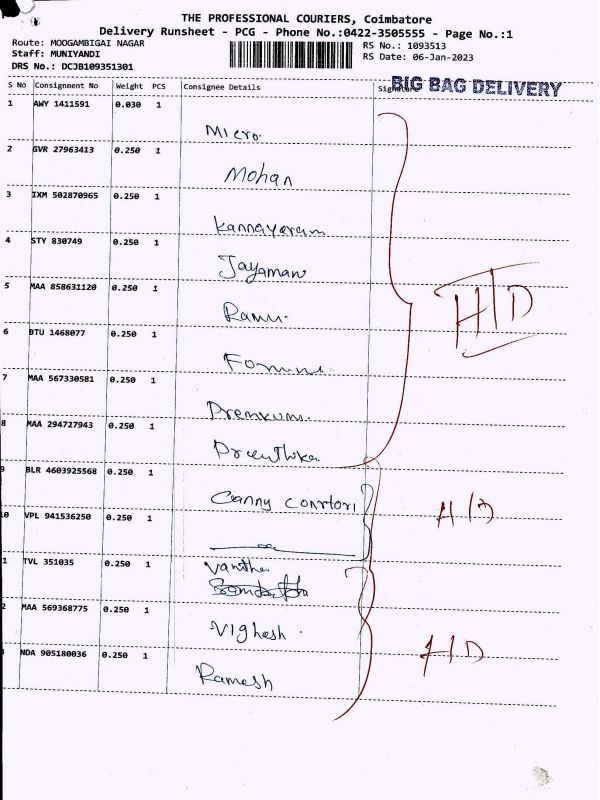 THE PROFESSIONAL COURIERS, Coimbatore
Delivery Runsheet - PCG - Phone No.:0422-3505555 - Page No.:1
Route: MOOGAMBIGAI NAGAR
Staff: MUNIYANDI
DRS No.: DCJB109351301
RS No.: 1093513
RS Date: 06-Jan-2023
S No Consignment No Weight PCS Consignee Details Signature
BIG BAG DELIVERY
1 AWY 1411591 0.030 1
Micro.
2 GVR 27963413 0.250 1
Mohan
3 IXM 502870965 0.250 1
Kannayaram
4 STY 830749 0.250 1
Jayaman
5 MAA 858631120 0.250 1
Ramu.
H/D
6 BTU 1468077 0.250 1
7 MAA 567330581 0.250 1
Premkum.
8 MAA 294727943 0.250 1
Preethika
9 BLR 4603925568 0.250 1
Canny
H/D
0 VPL 941536250 0.250 1
1 TVL 351035 0.250 1
Vanitha
2 MAA 569368775 0.250 1
Vighesh
H/D
NDA 905180036 0.250 1
Ramesh